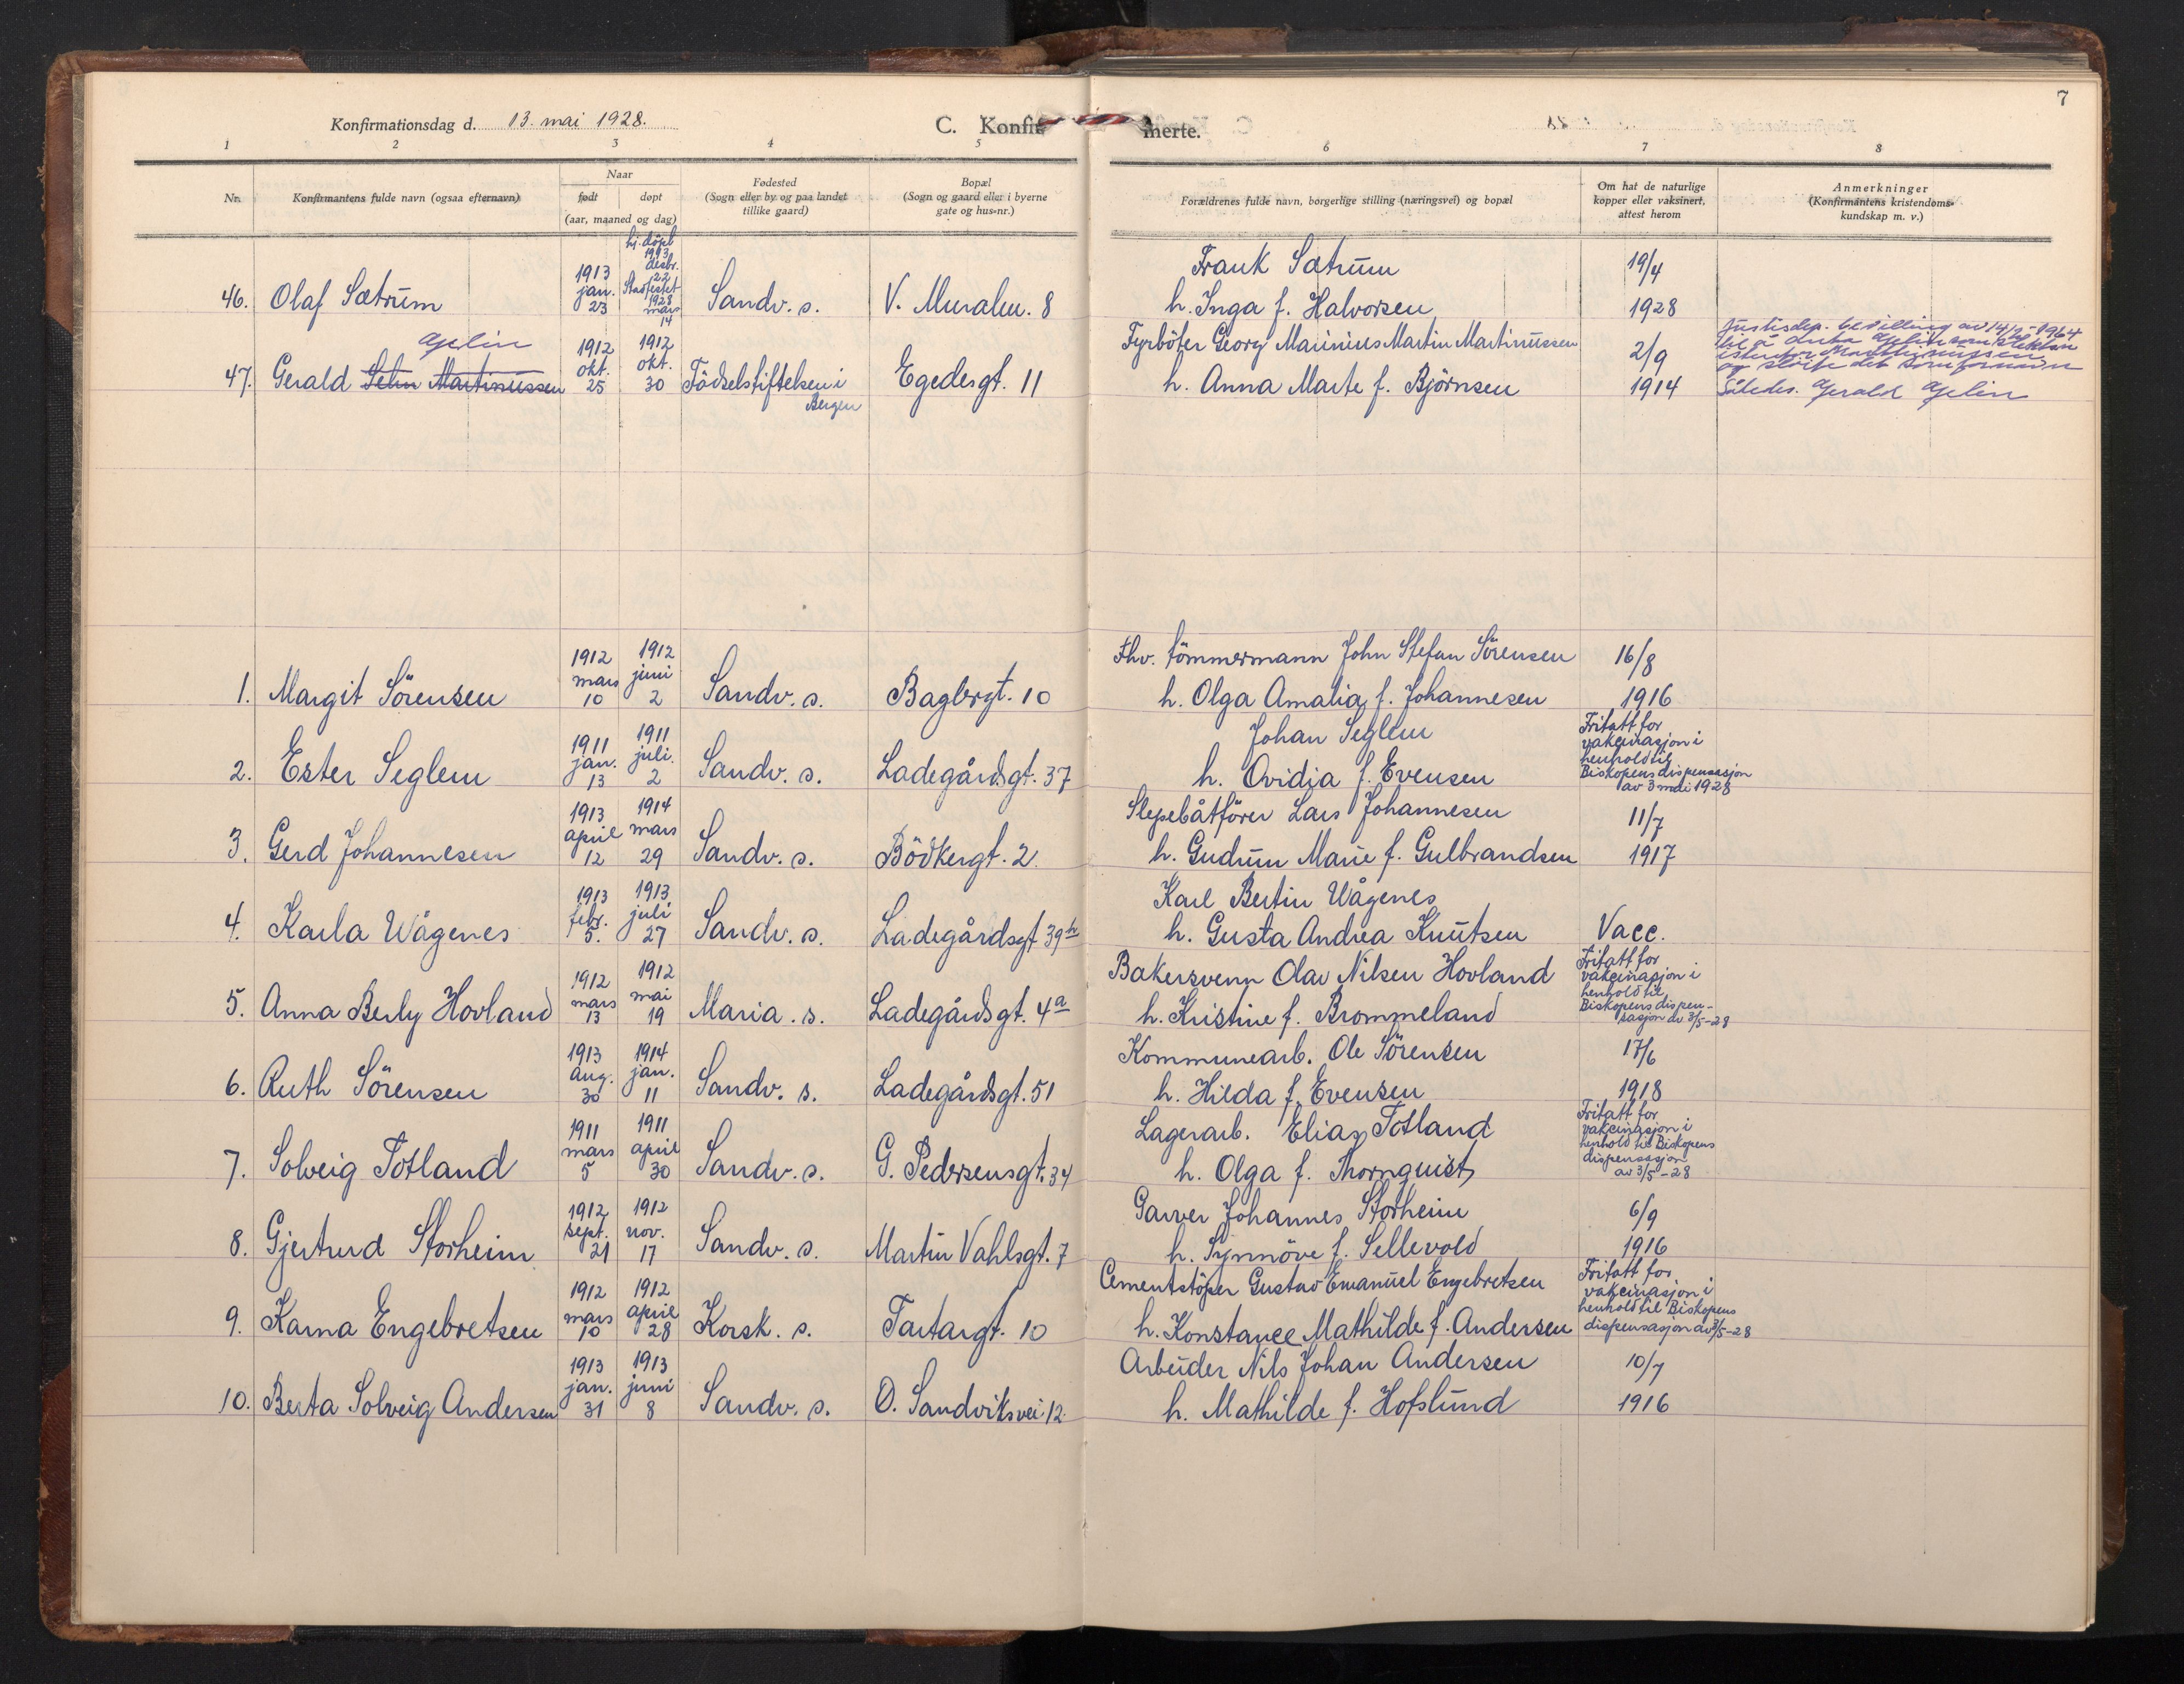 7
Konfirmationsdag d. 13. mai 1928.
C. Konfirmerte.
1 2 3 4 5 6 7 8
Nr.
Konfirmantens fulde navn (ogsaa efternavn)
Naar
født
døpt
(aar, maaned og dag)
Fødested
(Sogn eller by og paa landet
tillike gaard)
Bopæl
(Sogn og gaard eller i byerne
gate og hus-nr.)
Forældrenes fulde navn, borgerlige stilling (næringsvei) og bopæl
Om hat de naturlige
kopper eller vaksinert,
attest herom
Anmerkninger
(Konfirmantens kristendoms-
kundskap m. v.)
46. Olaf Sætrum
1913
jan.
23
hj. döpt
1913
desbr.
22
Stadfestet
1928
mars
14
Sandv. s.
V. Muralm. 8
Frank Sætrum
h. Inga f. Halvorsen
19/4
1928
Gjelin
47. Gerald Selin Martinussen
1912
okt.
25
1912
okt.
30
Födselstiftelsen i
Bergen
Egedesgt. 11
Fyrböter Georg Marinius Martin Martinussen
h. Anna Marte f. Björnsen
2/9
1914
Justisdep. bevilling av 14/2-1964
til å
og slöife det som fornavn
Således. Gerald Gjelin
1. Margit Sörensen
1912
mars
10
1912
juni
2
Sandv. s.
Baglergt. 10
Fhv. tömmermann John Stefan Sörensen
h. Olga Amalia f. Johannesen
16/8
1916
2. Ester Seglem
1911
jan.
13
1911
juli.
2
Sandv. s.
Ladegårdsgt. 37
Johan Seglem
h. Ovidia f. Evensen
Fritatt for
vakcinasjon i
henhold til
Biskopens dispensasjon
av 3 mai 1928
3. Gerd Johannesen
1913
april
12
1914
mars
29
Sandv. s.
Bödkergt. 2.
Slepebåtförer Lars Johannesen
h. Gudrun Marie f. Gulbrandsen
11/7
1917
4. Karla Wågenes
1913
febr.
5.
1913
juli
27
Sandv. s.
Ladegårdsgt 39 h
Karl Bertin Wågenes
h. Gusta Andrea Knutsen
Vacc.
5. Anna Berly Hovland
1912
mars
13
1912
mai
19
Maria. s.
Ladegårdsgt. 4a
Bakersvenn Olav Nilsen Hovland
h. Kristine f. Brommeland
Fritatt for
vakcinasjon i
henhold til
Biskopens dispen-
sasjon av 3/5-28
6. Ruth Sörensen
1913
aug.
30
1914
jan.
11
Sandv. s.
Ladegårdsgt. 51
Kommunearb. Ole Sörensen
h. Hilda f. Evensen
17/6
1918
7. Solveig Totland
1911
mars
5
1911
april
30
Sandv. s.
G. Pedersensgt. 34
Lagerarb. Elias Totland
h. Olga f. Thornquist
Fritatt for
vakcinasjon i
henhold til Biskopens
dispensasjon
av 3/5-28
8. Gjertrud Storheim
1912
sept.
21
1912
nov.
17
Sandv. s.
Martin Vahlsgt. 7
Garver Johannes Storheim
h. Synnöve f. Sellevold
6/9
1916
9. Karna Engebretsen
1912
mars
10
1912
april
28
Korsk. s.
Tartargt. 10
Cementstöper Gustav Emanuel Engebretsen
h. Konstance Mathilde f. Andersen
Fritatt for
vakcinasjon i
henhold til Biskopens
dispensasjon av 3/5-28
10. Berta Solveig Andersen
1913
jan.
31
1913
juni
8
Sandv. s.
O. Sandviksvei 12.
Arbeider Nils Johan Andersen
h. Mathilde f. Hofslund
10/7
1916